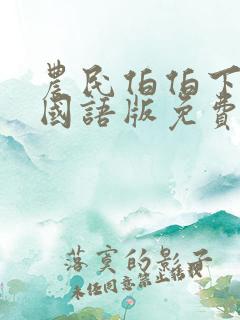 農民伯伯下
國語版免費
落寞的影子
未任同意禁止转载